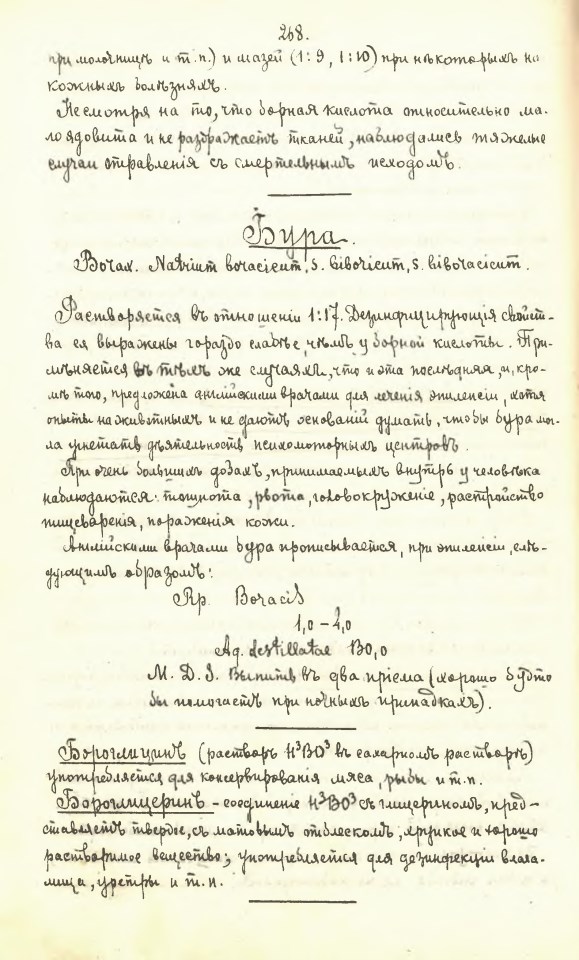 268.
при молочницѣ и т.п.) и мазей (1:9, 1:10) при нѣкоторыхъ на
кожныхъ болѣзняхъ.
Несмотря на то, что борная кислота относительно ма-
лоядовита и не раздражаетъ тканей, наблюдались тяжелые
случаи отравленія съ смертельнымъ исходомъ.
Бура.
Borax. Natrium boracicum, s. biboricum, s. biboracicum.
Растворяется въ отношеніи 1:17. Дезинфицирующія свойст-
ва ея выражены гораздо слабѣе, чѣмъ у борной кислоты. При-
мѣняется въ тѣхъ же случаяхъ, что и эта послѣдняя, и, кро-
мѣ того, предложена англійскими врачами для лѣченія эпилепсіи, хотя
опыты на животныхъ и не даютъ основаній думать, чтобы бура мог-
ла угнетать дѣятельность психомоторныхъ центровъ.
При очень большихъ дозахъ, принимаемыхъ внутрь у человѣка
наблюдаются: тошнота, рвота, головокруженіе, растройство
пищеваренія, пораженія кожи.
Англійскими врачами бура прописывается, при эпилепсіи, слѣ-
дующимъ образомъ:
Rp. Boracis
1,0 – 4,0
Aq. destillatae 130,0
M. D. S. Выпить въ два пріема (хорошо будто
бы помогаетъ при ночныхъ припадкахъ).
Бороглицинъ (растворъ H³BO³ въ сахарномъ растворѣ)
употребляется для консервированія мяса, рыбы и т.п.
Бороглицеринъ – соединеніе H³BO³ съ глицериномъ, пред-
ставляетъ твердое, съ матовымъ отблескомъ, хрупкое и хорошо
растворимое вещество; употребляется для дезинфекціи влага-
лища, уретры и т.п.